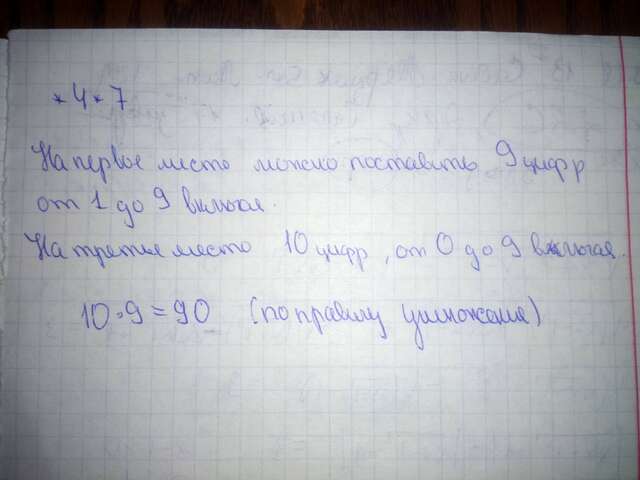 *4*7
На первое место можно поставить 9 цифр
от 1 до 9 включая.
На третье место 10 цифр, от 0 до 9 включая.
10·9=90 (по правилу умножения)